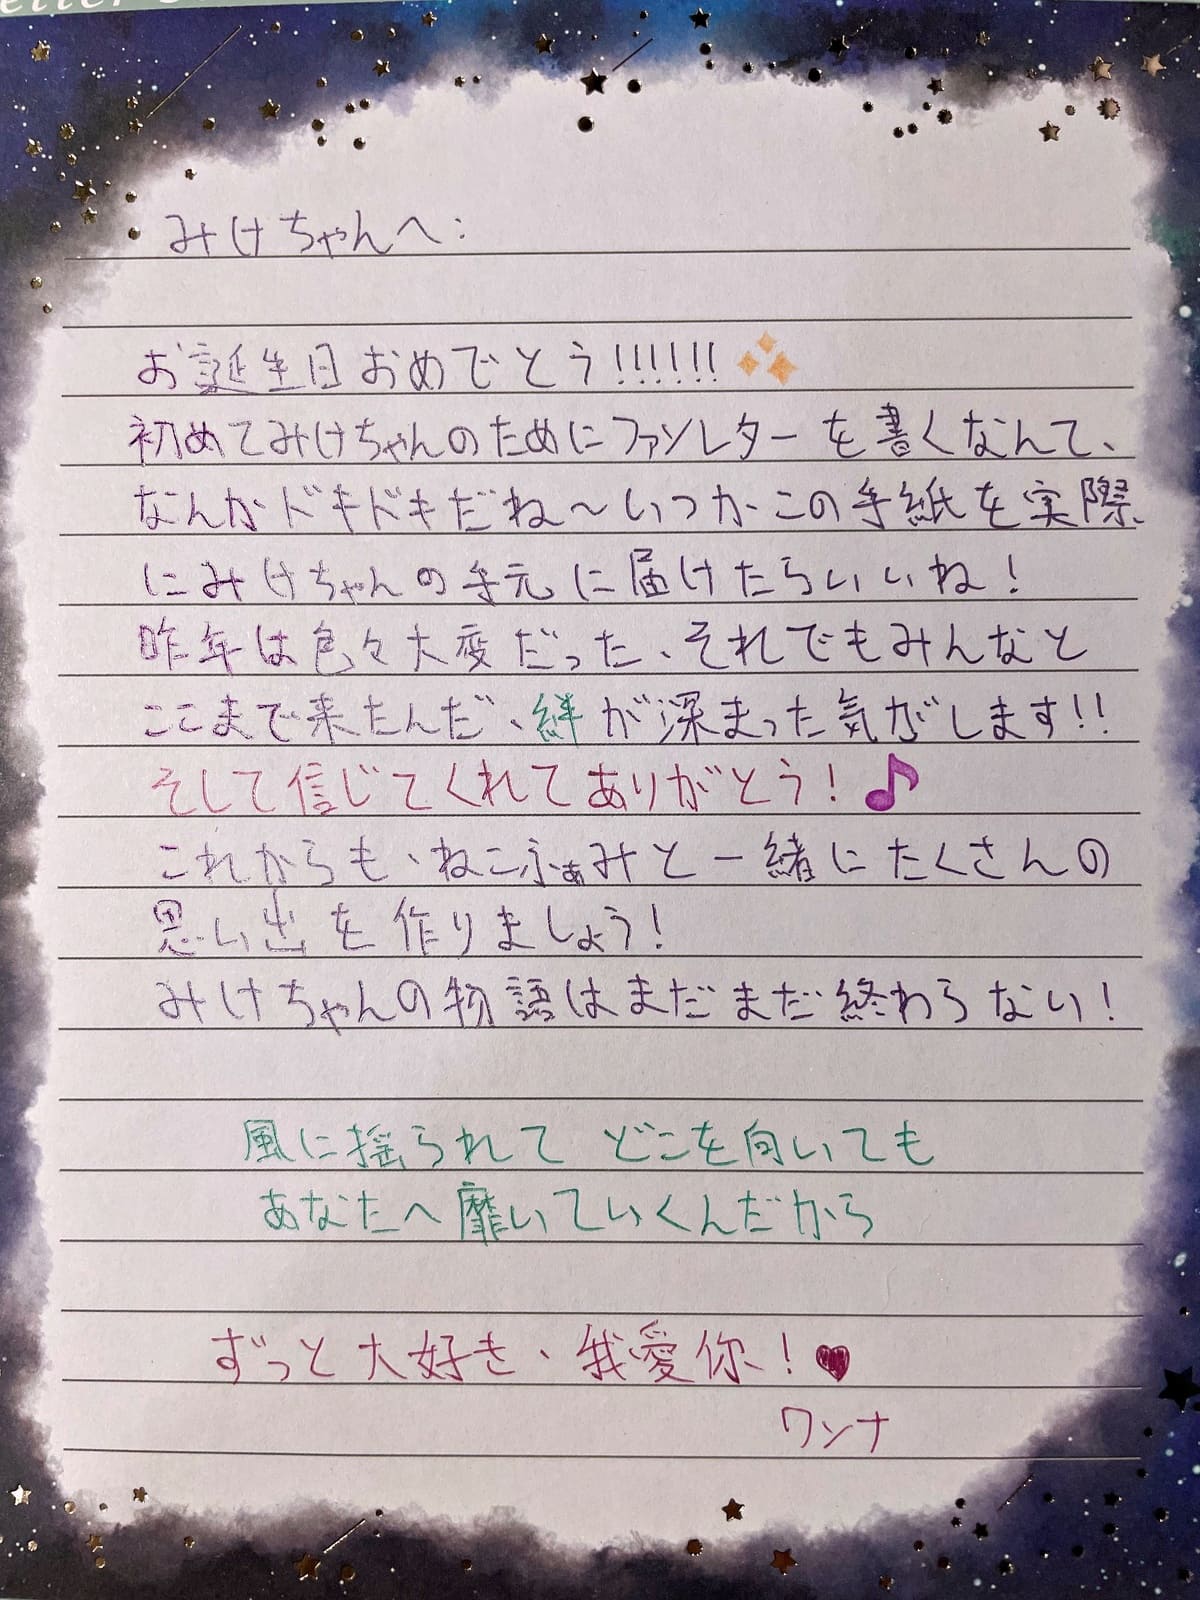 みけちゃんへ:
お誕生日おめでとう!!!!!!
初めてみけちゃんのためにファンレターを書くなんて、
なんかドキドキだね〜いつかこの手紙を実際
にみけちゃんの手元に届けたらいいね!
昨年は色々大変だった、それでもみんなと
ここまで来たんだ、絆が深まった気がします!!
そして信じてくれてありがとう!
これからも、ねこふぁみと一緒にたくさんの
思い出を作りましょう!
みけちゃんの物語はまだまだ終わらない!
風に揺られて どこを向いても
あなたへ靡いていくんだから
ずっと大好き、我愛你!
ワンナ